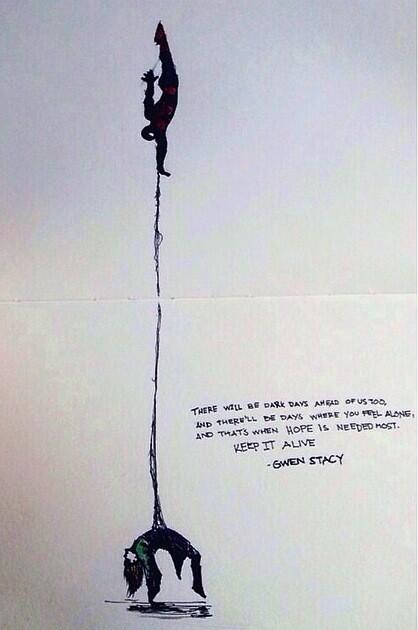 THERE WILL BE DARK DAYS AHEAD OF US TOO,
AND THERE'LL BE DAYS WHERE YOU FEEL ALONE,
AND THAT'S WHEN HOPE IS NEEDED MOST.
KEEP IT ALIVE
-GWEN STACY